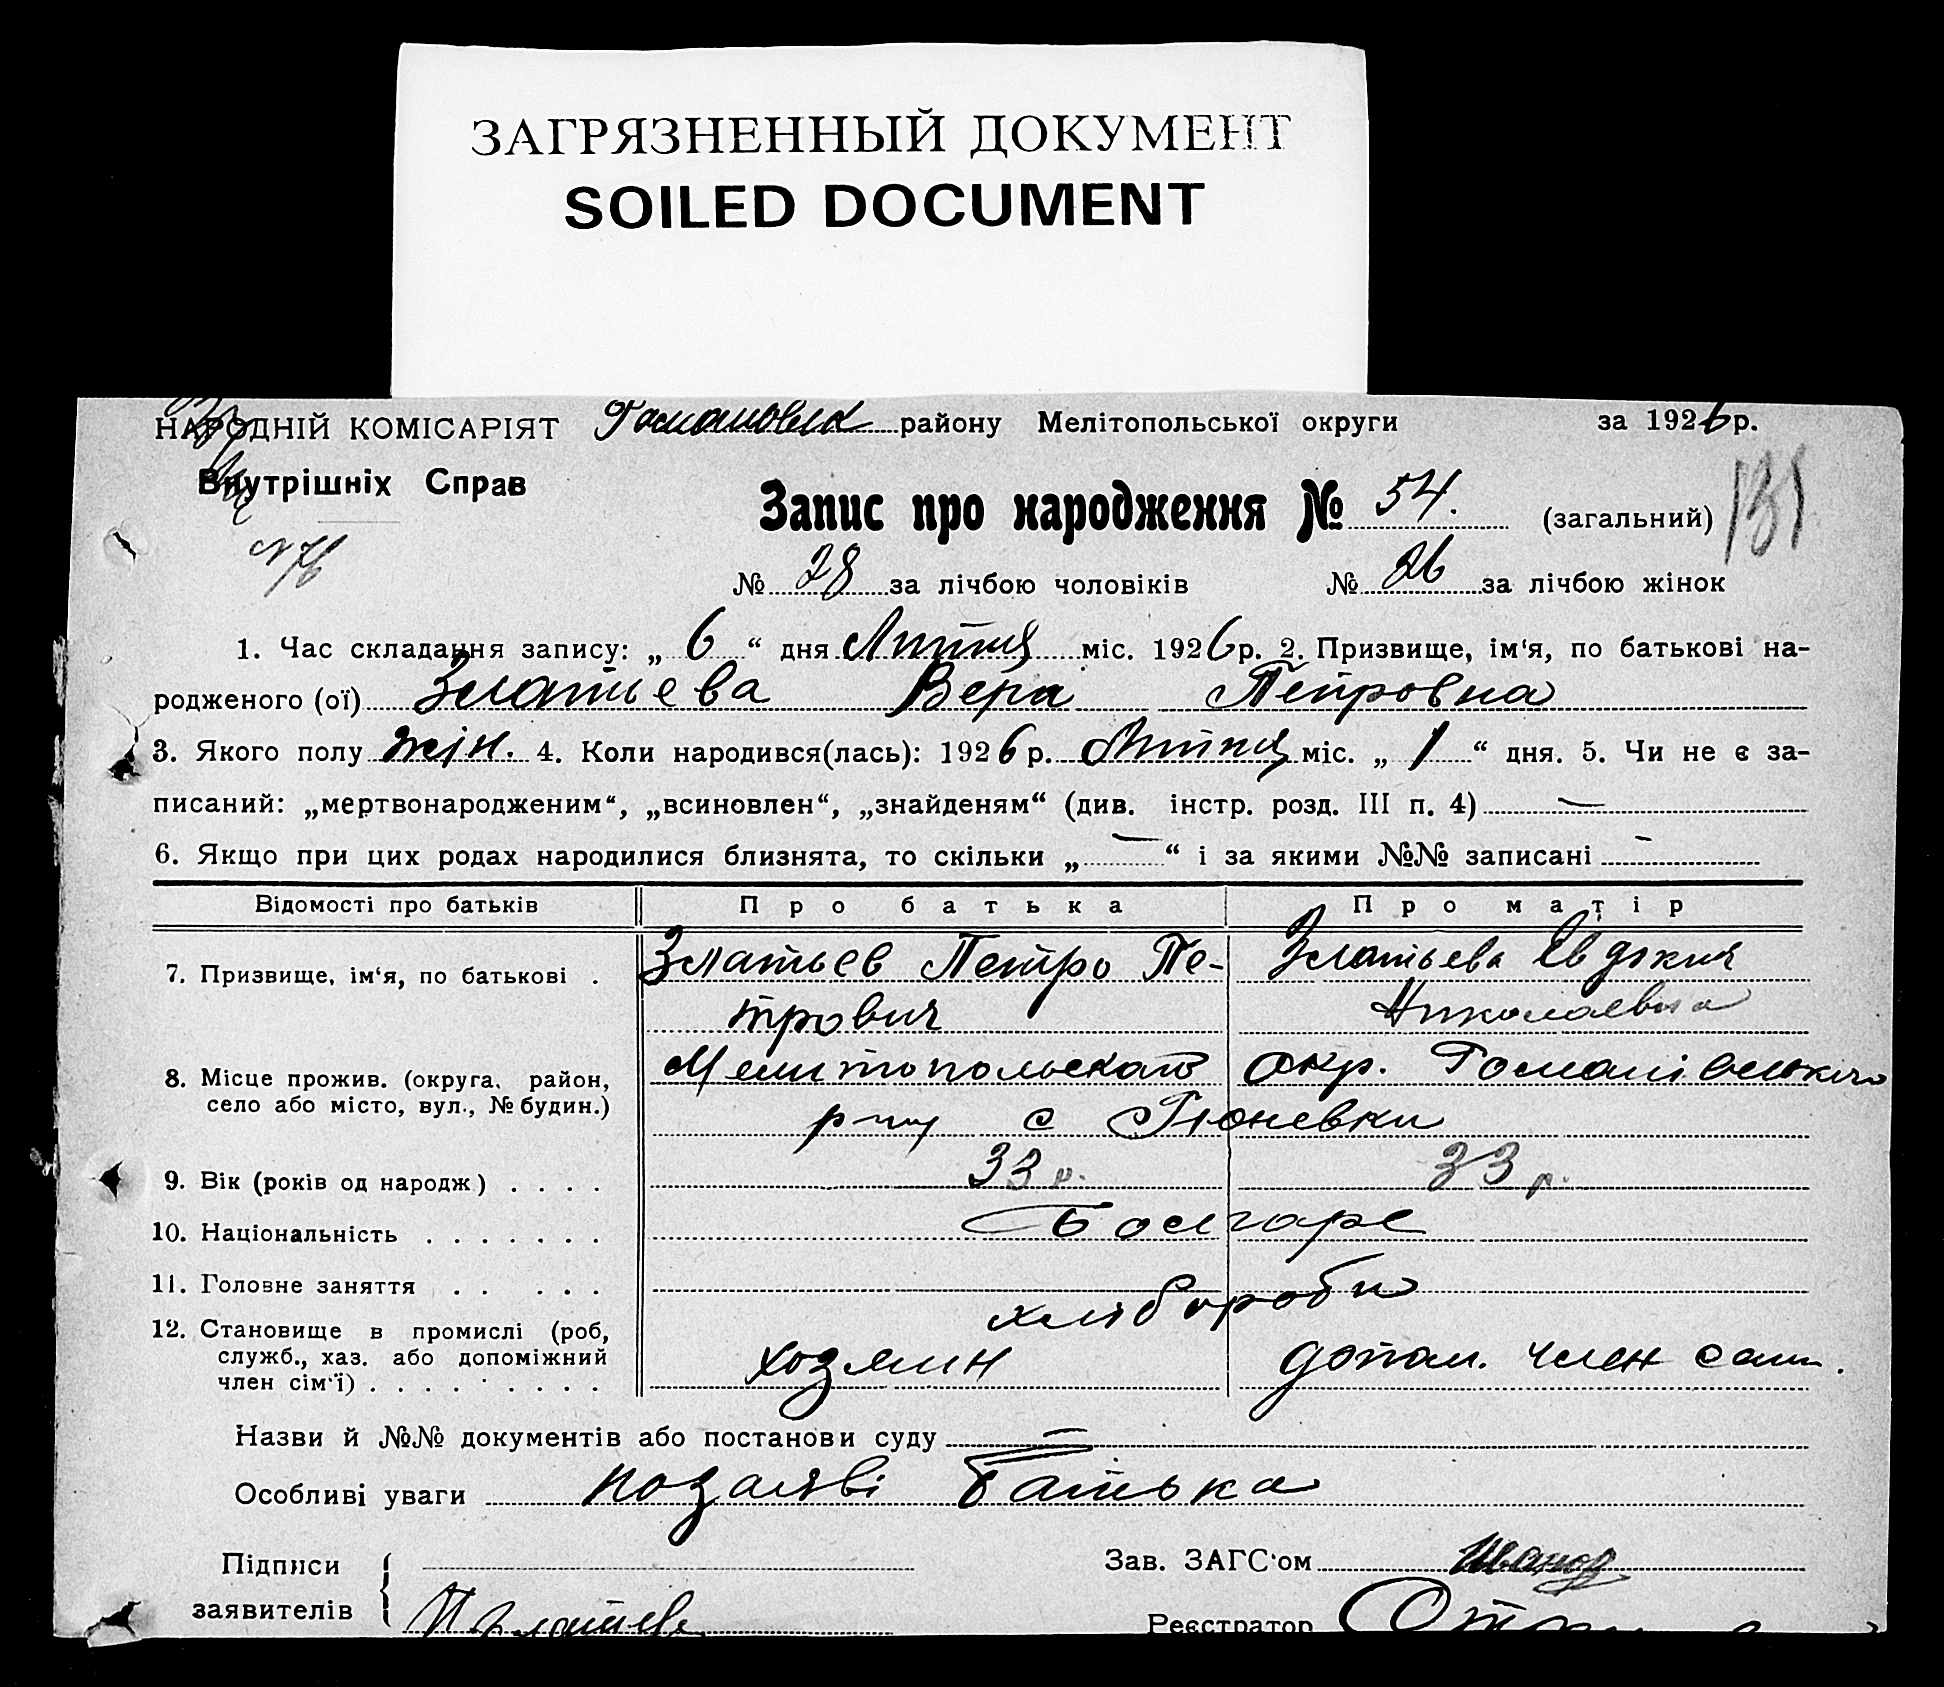 ЗАГРЯЗНЕННЫЙ ДОКУМЕНТ
SOILED DOCUMENT
НАРОДНІЙ КОМІСАРІЯТ району Мелітопольської округи за 1926 р.
Внутрішніх Справ
131
Запис про народження № 54. (загальний)
№ 28 за лічбою чоловіків № 26 за лічбою жінок
1. Час складання запису: „ 6 “ дня Липня міс. 1926 р. 2. Призвище, ім‘я, по батькові на-
родженого (ої) Златьева Вера Петровна
3. Якого полу жін. 4. Коли народився(лась): 1926 р. Липня міс. „ 1 “ дня. 5. Чи не є за-
писаний: „мертвонародженим“, „всиновлен“, „знайденям“ (див. інстр. розд. III п. 4) —
6. Якщо при цих родах народилися близнята, то скільки „ — “ і за якими №№ записані —
Відомості про батьків Про батька Про матір
7. Призвище, ім‘я, по батькові . Златьев Петро Пе- Златьева Евдокия
трович Николаевна
8. Місце прожив. (округа, район, Мелитопольскат окр. Романівського
село або місто, вул., № будин.) р-ну с Гюневки
9. Вік (років од народж) . . . . 33 р. 33 р.
10. Національність . . . . . . . Болгаре
11. Головне заняття . . . . . хлібороби
12. Становище в промислі (роб,
служб., хаз. або допоміжний хозяин допом. член сем.
член сім‘ї) . . . . . . . . .
Назви й №№ документів або постанови суду —
Особливі уваги по заяві батька
Підписи Зав. ЗАГС‘ом Иванов
заявителів П Златьев Реєстратор